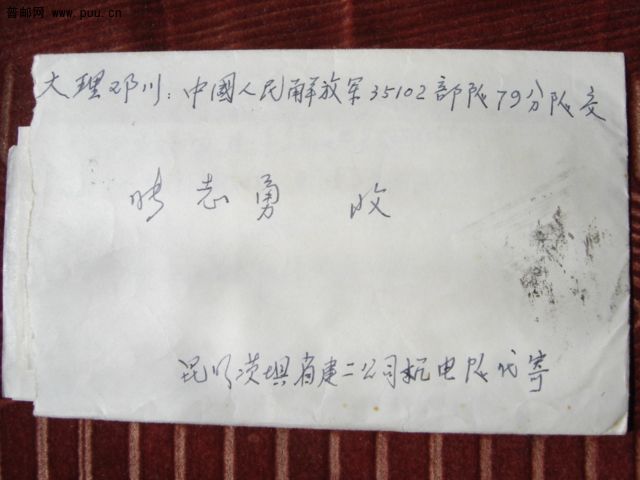 普邮网 www.puu.cn
大理邓川：中國人民解放军35102部队79分队交
志勇 收
昆明茨坝省建二公司机电队代寄